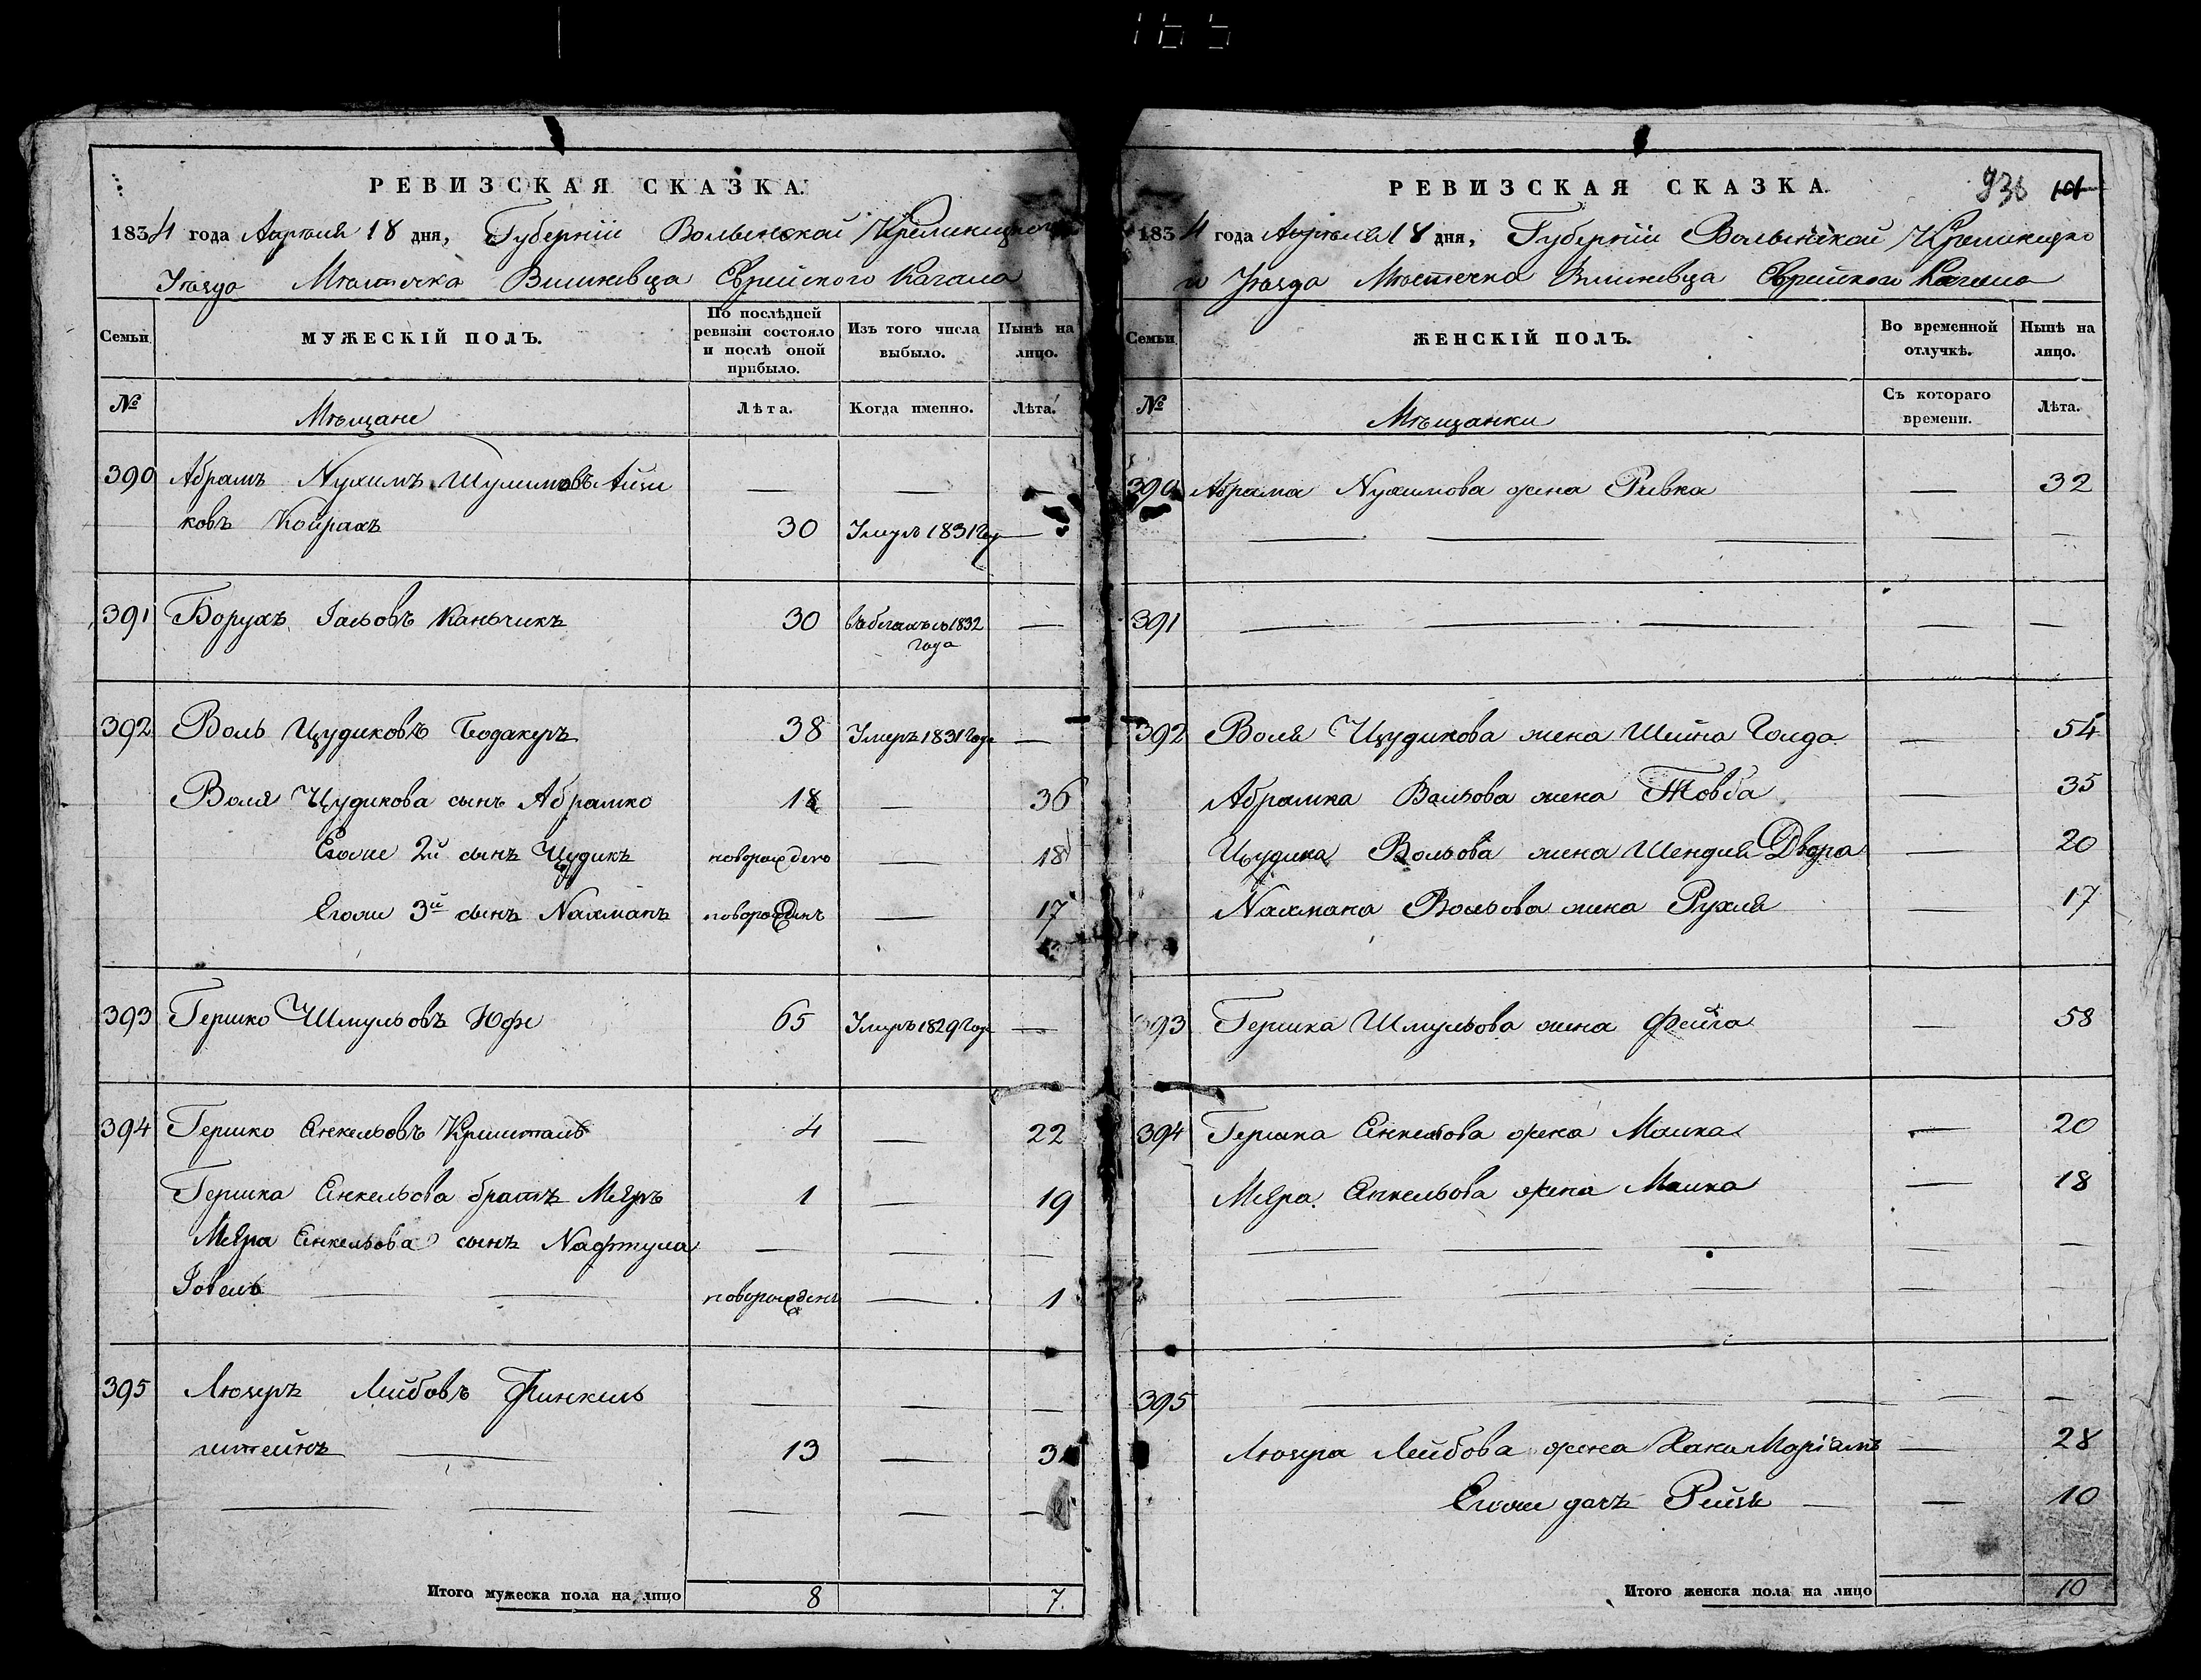 165
РЕВИЗСКАЯ СКАЗКА.
1834 года Апрѣля 18 дня, Губерніи Волынской Кременецкого
Уѣзда Мѣстечка Вишневца Еврейского Кагала
Семьи
МУЖЕСКІЙ ПОЛЪ.
По послѣдней ревизіи состояло и послѣ оной прибыло.
Изъ того числа выбыло.
Нынѣ на лицо.
№
Мѣщане
Лѣта.
Когда именно.
Лѣта.
390 Абрамъ Нухимъ Шулимовъ Айзи — —
ковъ Койрахъ 30 Умеръ 1831 Году —
391 Борухъ Канчикъ 30 въ бегахъ съ 1832 года —
392 Воль Цудиковъ Бодакеръ 38 Умеръ 1831 Года —
Воля Цудикова сынъ Абрамко 18 — 36
Егоже 2й сынъ Цудикъ новорожденъ — 18
Егоже 3й сынъ Нахманъ новорожденъ — 17
393 Гершко Шмульовъ Юфе 65 Умеръ 1829 Года —
394 Гершко Енкельовъ Кришталь 4 — 22
Гершка Енкельова братъ Меяръ 1 — 19
Меяра Енкельова сынъ Нафтула — — —
Іовель новорожденъ — 1
395 Люзеръ Лейбовъ Финкель — — —
штейнъ 13 — 31
— — — — —
Итого мужеска пола на лицо 8 7
РЕВИЗСКАЯ СКАЗКА.
936 101
1834 года Апрѣля 18 дня, Губерніи Волынской Кременецко
го Уѣзда Мѣстечка Вишневца Еврейского Кагала
Семьи
ЖЕНСКІЙ ПОЛЪ.
Во временной отлучкѣ.
Нынѣ на лицо.
№
Мѣщанки
Съ котораго времени.
Лѣта.
390 Абрама Нухимова жена Ривка — 32
— — — — —
391 — — — — —
392 Воля Цудикова жена Шейна Голда — 54
Абрамка Вольова жена Товба — 35
Цудика Вольова жена Шендля Двора — 20
Нахмана Вольова жена Рухля — 17
393 Гершка Шмульова жена Фейга — 58
394 Гершка Енкельова жена Малка — 20
Меяра Енкельова жена Малка — 18
— — — — —
— — — — —
395 — — — — —
Люзера Лейбова жена Хана Маріамъ — 28
Егоже дочь Рейзя — 10
Итого женска пола на лицо 10